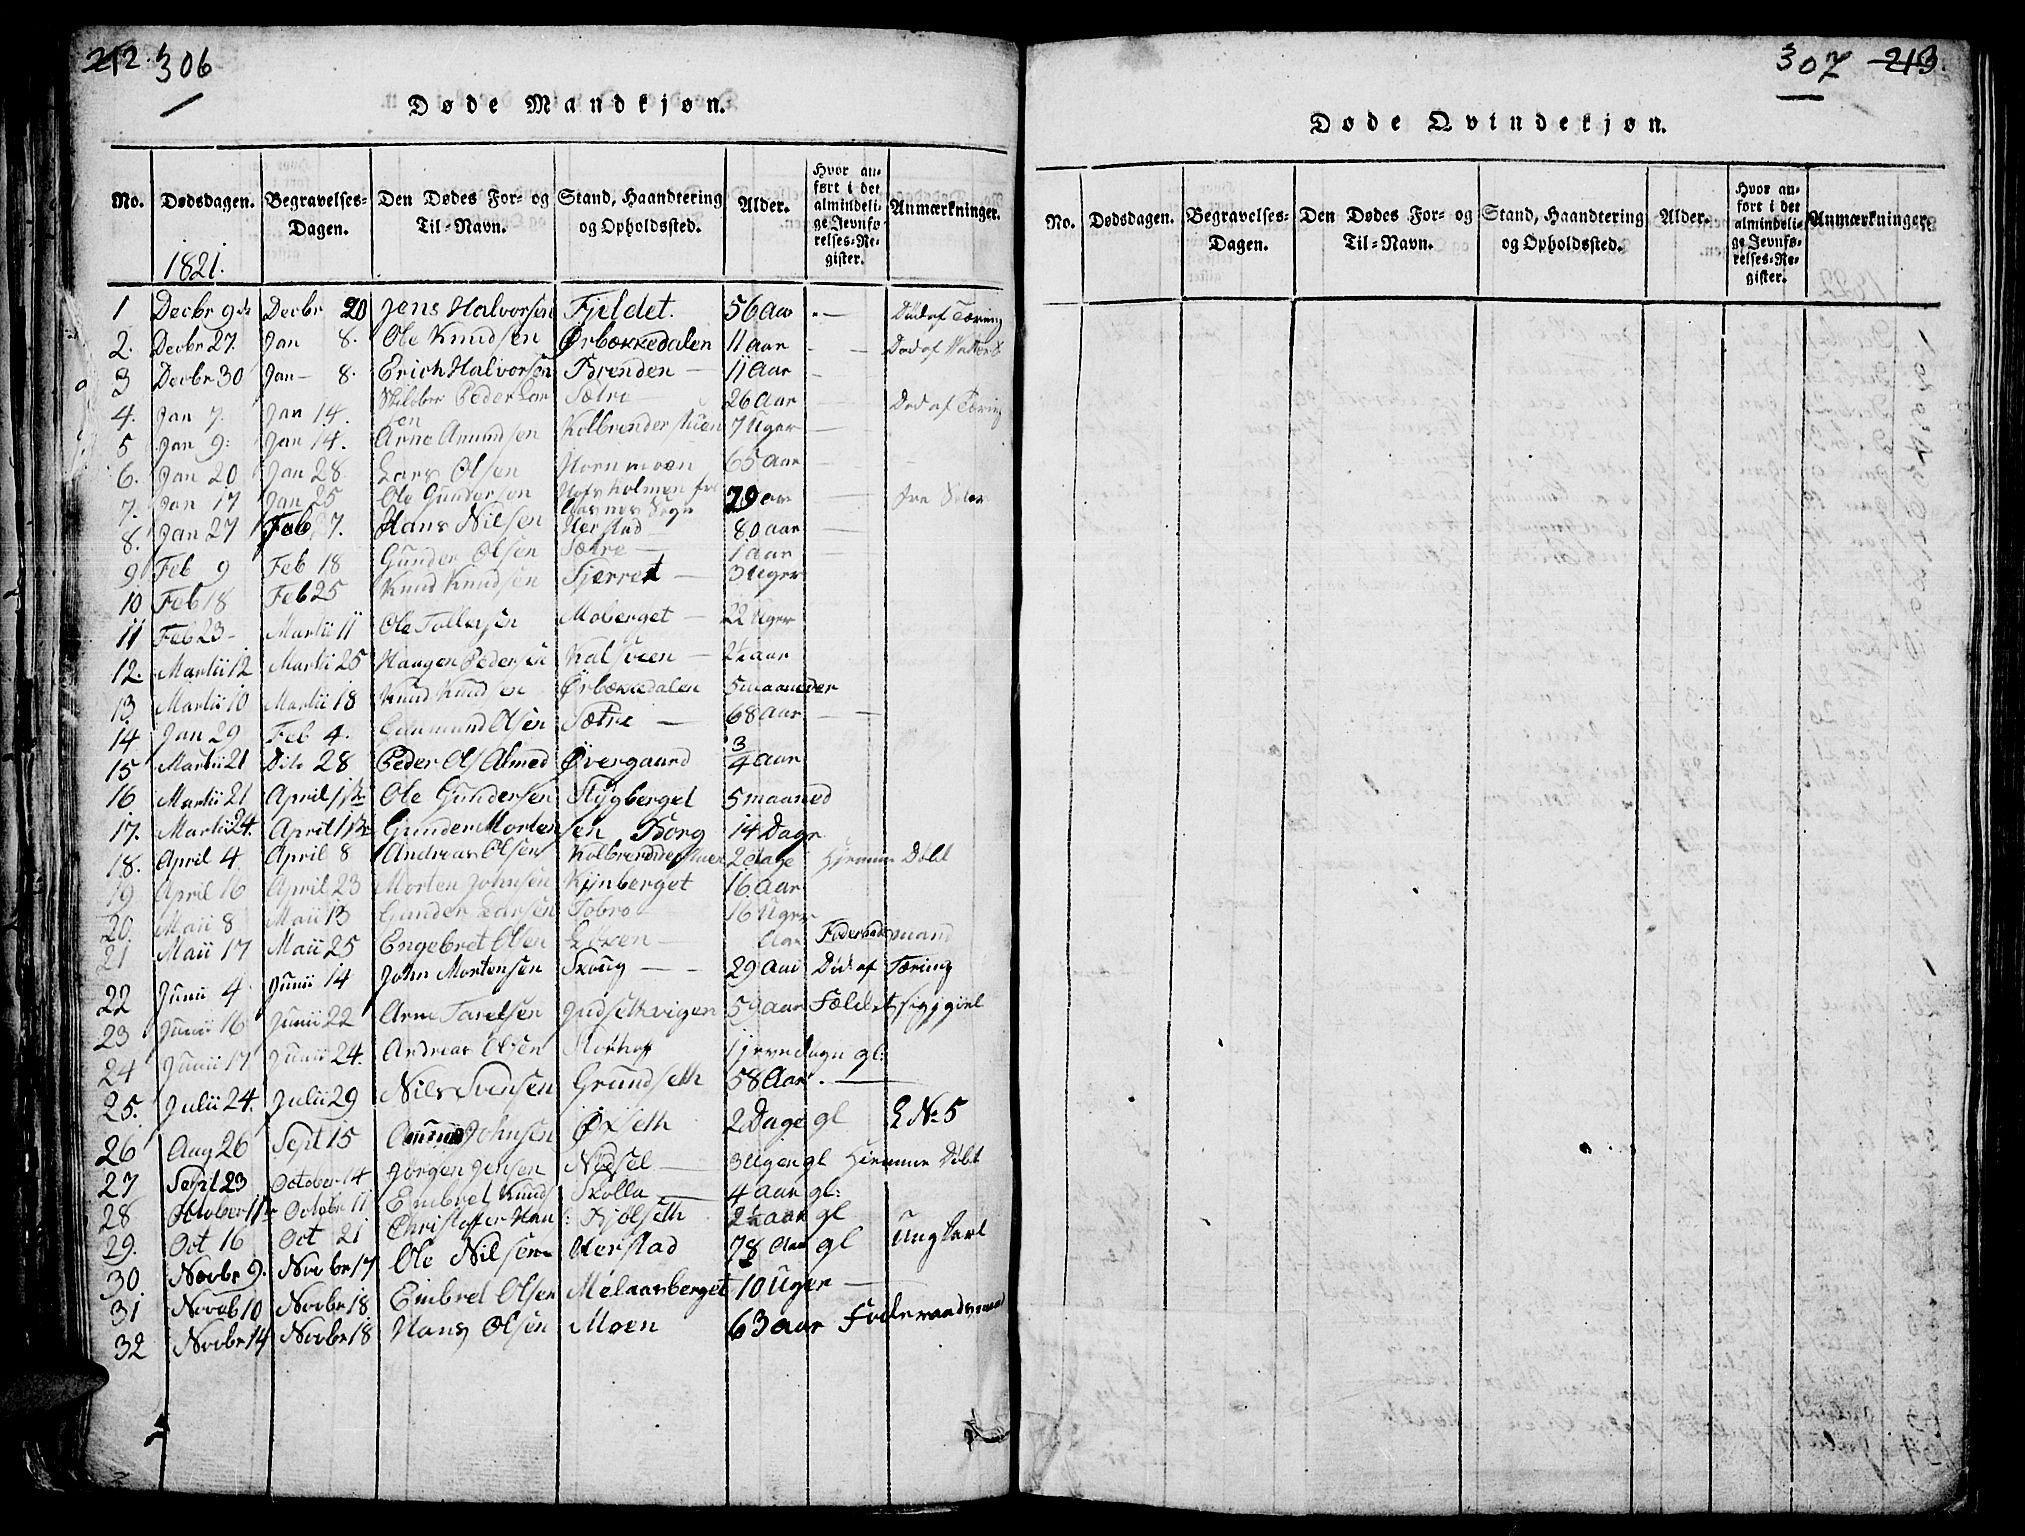 212. 306
Døde Mandkjøn.
No. Dødsdagen. Begravelses-Dagen. Den Dødes For- og Til-Navn. Stand, Haandtering og Opholdssted. Alder. Hvor anført i det almindelige Jevnførelses-Register. Anmærkninger.
1821.
1 Decbr 9de Decbr 20 Jens Halvorsen Fjeldet. 56 Aar Død af Tæring
2. Decbr 27. Jan 8. Ole Knudsen Ørbækkedalen 11 aar Død af
3 Decbr 30 Jan 8. Erich Halvorsen Brenden 11 Aar
4. Jan 7. Jan 14. Peder Sætre 26 Aar Død af Tæring
5 Jan 9. Jan 14. Arne Amundsen 7 Uger
6. Jan 20 Jan 28 Lars Olsen Hornmoen 65 Aar
7. Jan 17 Jan 25 Ole Gundersen 79 aar
8. Jan 27 Feb 7. Hans Nilsen Herstad 80 aar
9 Feb 9 Feb 18 Gunder Olsen Sætre 1 Aar
10 Feb 18 Feb 25 Knud Knudsen 3 Uger
11 Feb 23 Martii 11 Ole Tollefsen Moberget 22 Uger
12. Martii 12 Martii 25 Haagen Pedersen Kalsveen 2½ aar
13 Martii 10 Martii 18 Knud Knudsen Ørbækkedalen 5 maaneder
14 Jan 29 Feb 4. Gunmund Olsen Sætre 68 Aar
15 Martii 21 Dito 28 Peder Ols Almed Øvergaard 3/4 Aar
16 Martii 21 April 1ste Ole Gundersen Stygberget 5 maaned
17. Martii 24. April 1ste Gunder Mortensen Borg 14 Dage
18. April 4 April 8 Andreas Olsen 2 dage Hjemme Døbt
19 April 16 April 23 Morten Johnsen Kynberget 16 Aar
20 Maii 8 Maii 13 Gunder Larsen 16 Uger
21 Maii 17 Maii 25 Engebret Olsen Aar Føderaadsmand
22 Junii 4 Junii 14 John Mortensen Skoug 29 Aar Død af Tæring
23 Junii 16 Junii 22 Arne Tarelsen 59 aar
24 Junii 17 Junii 24. Andreas Olsen gl:
25. Julii 24. Julii 29 Nils Svensen Grundseth 58 Aar
26 Aug 26 Sept 15 Amund Johnsen Øxseth 2 Dage gl No 5
27 Sept 23 October 14 Jørgen Jensen Nødsel 3 Uger gl Hiemme Døbt
28 October 11te October 11 Embret Knuds Skolla 4 Aar gl:
29. Oct 16 Oct 21 Christoffer Han: Kjølseth 2½ aar gl
30. Novbr 9. Novbr 17 Ole Nilsen Herstad 78 Aar gl Ungkarl
31 Novb 10 Novbr 18 Embret Olsen Melaasberget 10 Uger
32 Novbr 14 Novbr 18 Hans Olsen Moen 63 aar Foderaadsmand
307 213.
Døde Qvindekjøn.
No. Dødsdagen. Begravelses-Dagen. Den Dødes For- og Til-Navn. Stand, Haandtering og Opholdssted. Alder. Hvor anført i det almindelige Jevnførelses-Register. Anmærkninger.